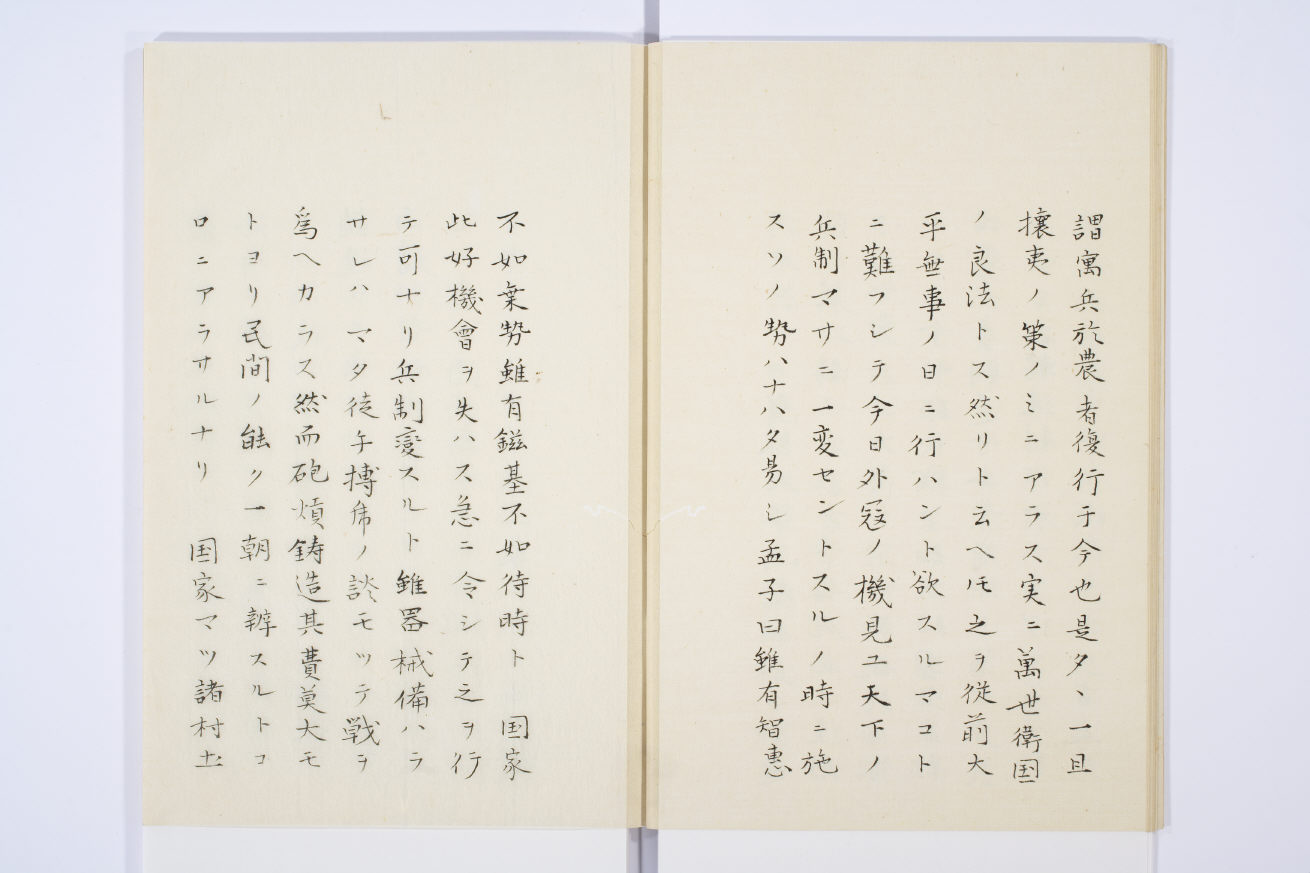 謂寓兵於農者復行于今也是タヽ一旦
攘夷ノ策ノミニアラス実ニ萬世衛国
ノ良法トス然リト云ヘ𪜈之ヲ従前大
平無事ノ日ニ行ハント欲スルマコト
ニ難フシテ今日外冦ノ機見ユ天下ノ
兵制マサニ一変セントスルノ時ニ施
スソノ勢ハナハタ易シ孟子曰雖有智惠
不如乗勢雖有鎡基不如待時ト　国家
此好機會ヲ失ハス急ニ令シテ之ヲ行
テ可ナリ兵制變スルト雖器械備ハラ
サレハマタ徒手搏虎ノ談モツテ戦ヲ
爲ヘカラス然而砲熕鋳造其費莫大モ
トヨリ民間ノ能ク一朝ニ辨スルトコ
ロニアラサルナリ　国家マツ諸村土